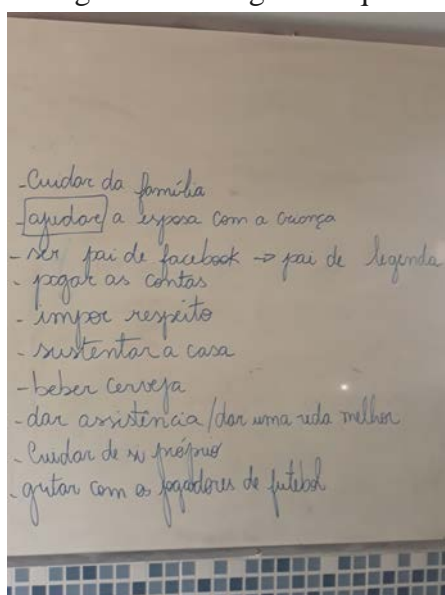 - Cuidar da família
- ajudar a esposa com a criança
- ser pai de facebook → pai de legenda
- pagar as contas
- impor respeito
- sustentar a casa
- beber cerveja
- dar assistência/dar uma vida melhor
- Cuidar de si próprio
- gritar com os jogadores de futebol